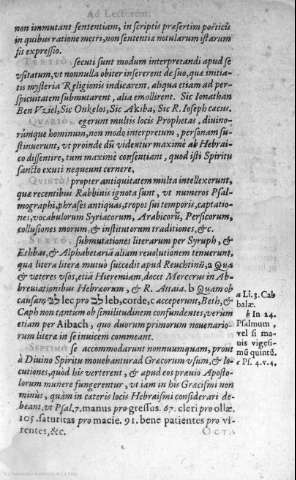 Ad Lectorem.
non immutant sententiam, in scriptis præsertim poëticis
in quibus ratione metri, non sententia notularum istarum
fit expressio.
TERTIO, secuti sunt modum interpretandi apud se
usitatum, ut nonnulla obiter insererent de suo, quæ initia-
tis mysteria Religionis indicarent, aliqua etiam ad per-
spicuitatem submutarent, alia emollirent. Sic Ionathan
Ben Vziel, Sic Onkelos, Sic Akiba, Sic R. Ioseph cæcus.
QVARTO, egerunt multis locis Prophetas, divino-
rúmque hominum, non modo interpretum, personam su-
stinuerunt, ut proinde dũ videntur maximè ab Hebrai-
co dissentire, tum maximè consentiant, quod isti Spiritu
sancto exuti nequeunt cernere.
QVINTO, propter antiquitatem multa intellexerunt,
quæ recentibus Rabbinis ignota sunt, ut numeros Psal-
mographi, phrases antiquas, tropos sui temporis, captatio-
nes, vocabulorum Syriacorum, Arabicorũ, Persicorum,
collusiones morum, & institutorum traditiones, &c.
SEXTO, submutationes literarum per Syruph, &
Ethbar, & Alphabetaria aliam revelutionem tenuerunt,
qua litera literæ mutuò succedit apud Reuchlinũ, a Qua
& veteres usos, etiã Hieremiam, docet Mercerus in Ab-
breviationibus Hebræorum, & R. Attaia. b Quam ob
causam לב lec pro לב leb, corde, c acceperunt, Beth, &
Caph non tantum ob similitudinem confundentes, verum
etiam per Aibach, quo duorum primorum novenario-
rum litera in se invicem commeant.
SEPTIMO, se accommodarunt nonnunquam, prout
à Divino Spiritu movebantur ad Græcorum usum, & lo-
cutiones, quòd his verterent, & apud eos prævio Aposto-
lorum munere fungerentur, ut iam in his Græcismi non
minus, quàm in cæteris locis Hebraismi considerari de-
beant, ut Psal. 7. manus pro gressos. 67. cleri pro ollæ.
105. saturitas pro macie. 91. bene patientes pro vi-
rentes, &c.
OCT-
a Li. 3. Cab
balæ.
b In 24.
Psalmum,
vel is ma-
vis vigesi-
mũ quintũ.
c Ps. 4. v. 4.